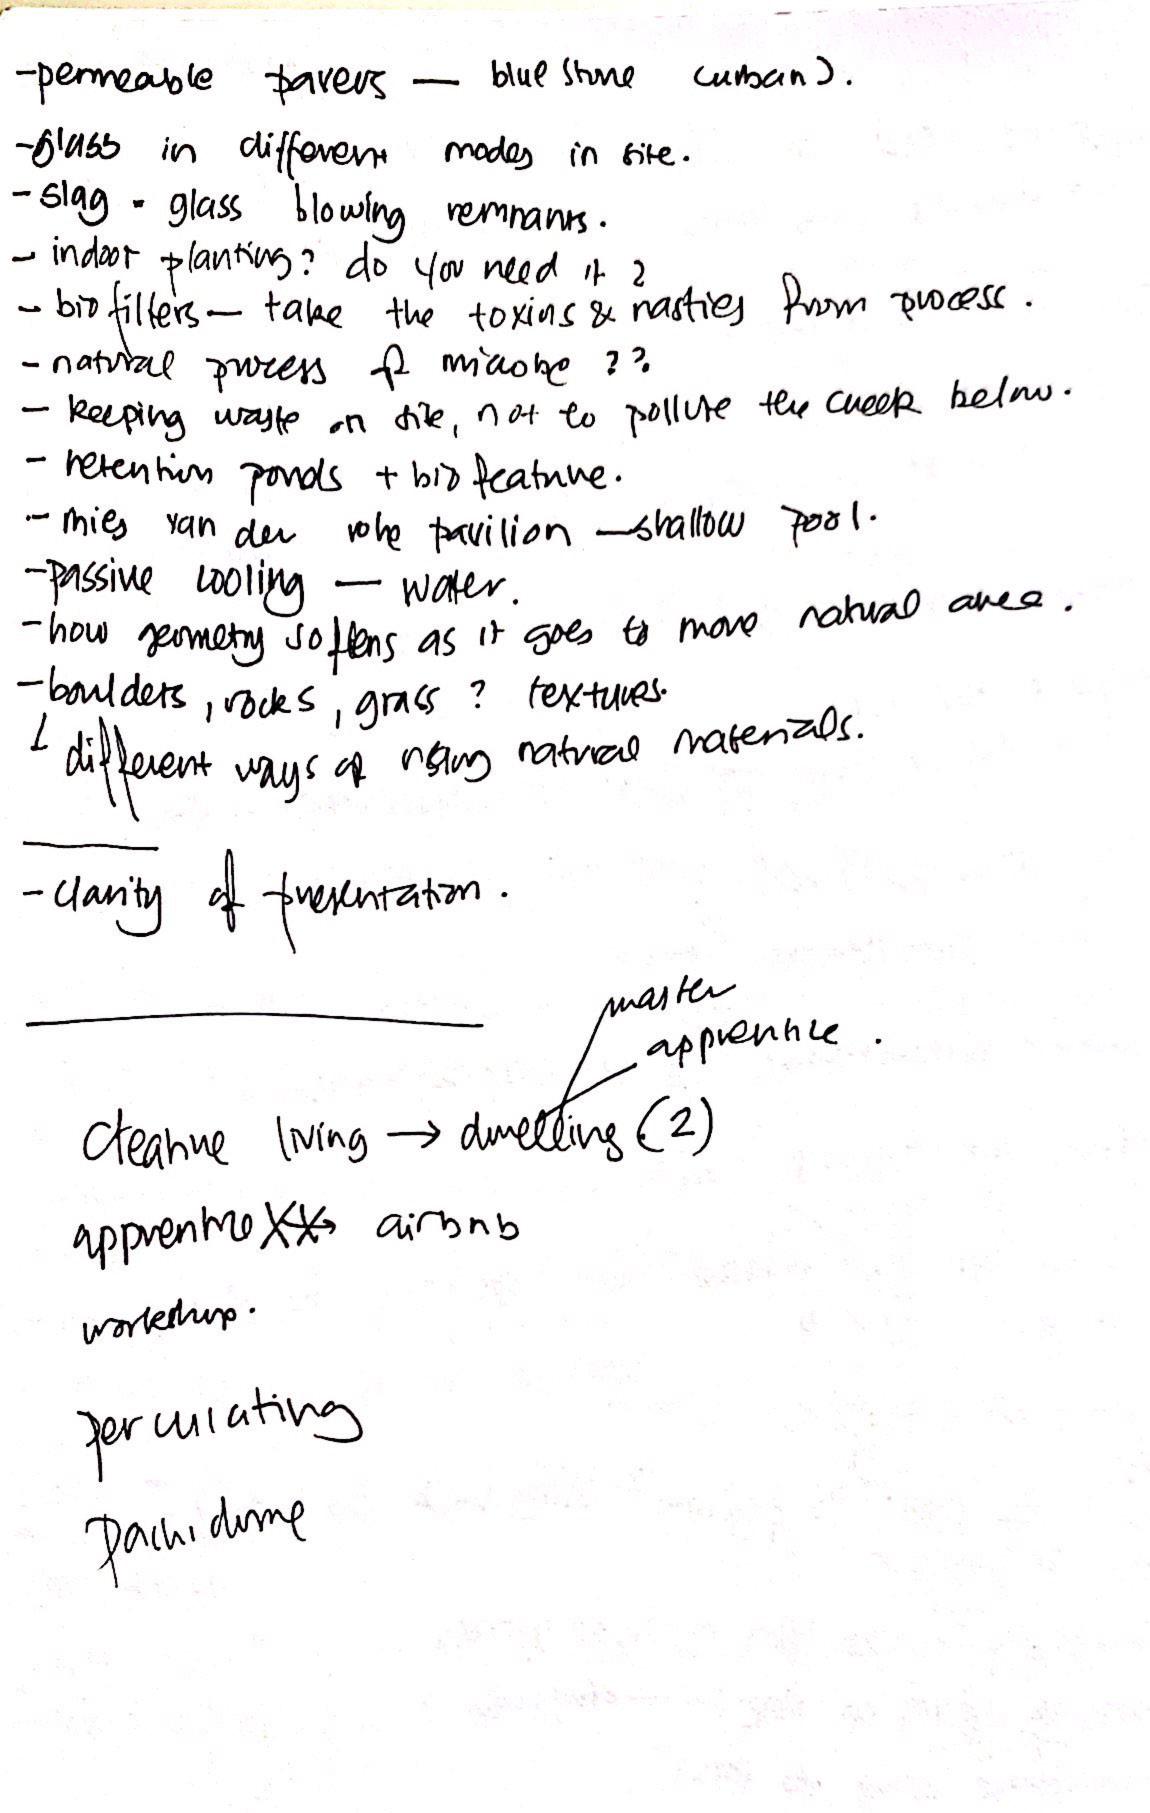 - permeable pavers — blue stone (urban).
- glass in different modes in site.
- slag - glass blowing remnants.
- indoor planting? do you need it?
- bio filters — take the toxins & nasties from process.
- natural process of microbe ??
- keeping waste on site, not to pollute the creek below.
- retention ponds + bio feature.
- mies van der rohe pavilion — shallow pool.
- passive cooling — water.
- how geometry softens as it goes to more natural area.
- boulders, rocks, grass ? textures.
different ways of using natural materials.
- clarity of presentation.
master
apprentice.
living → dwelling (2)
apprentice airbnb
workshop.
perculating
Pachidome